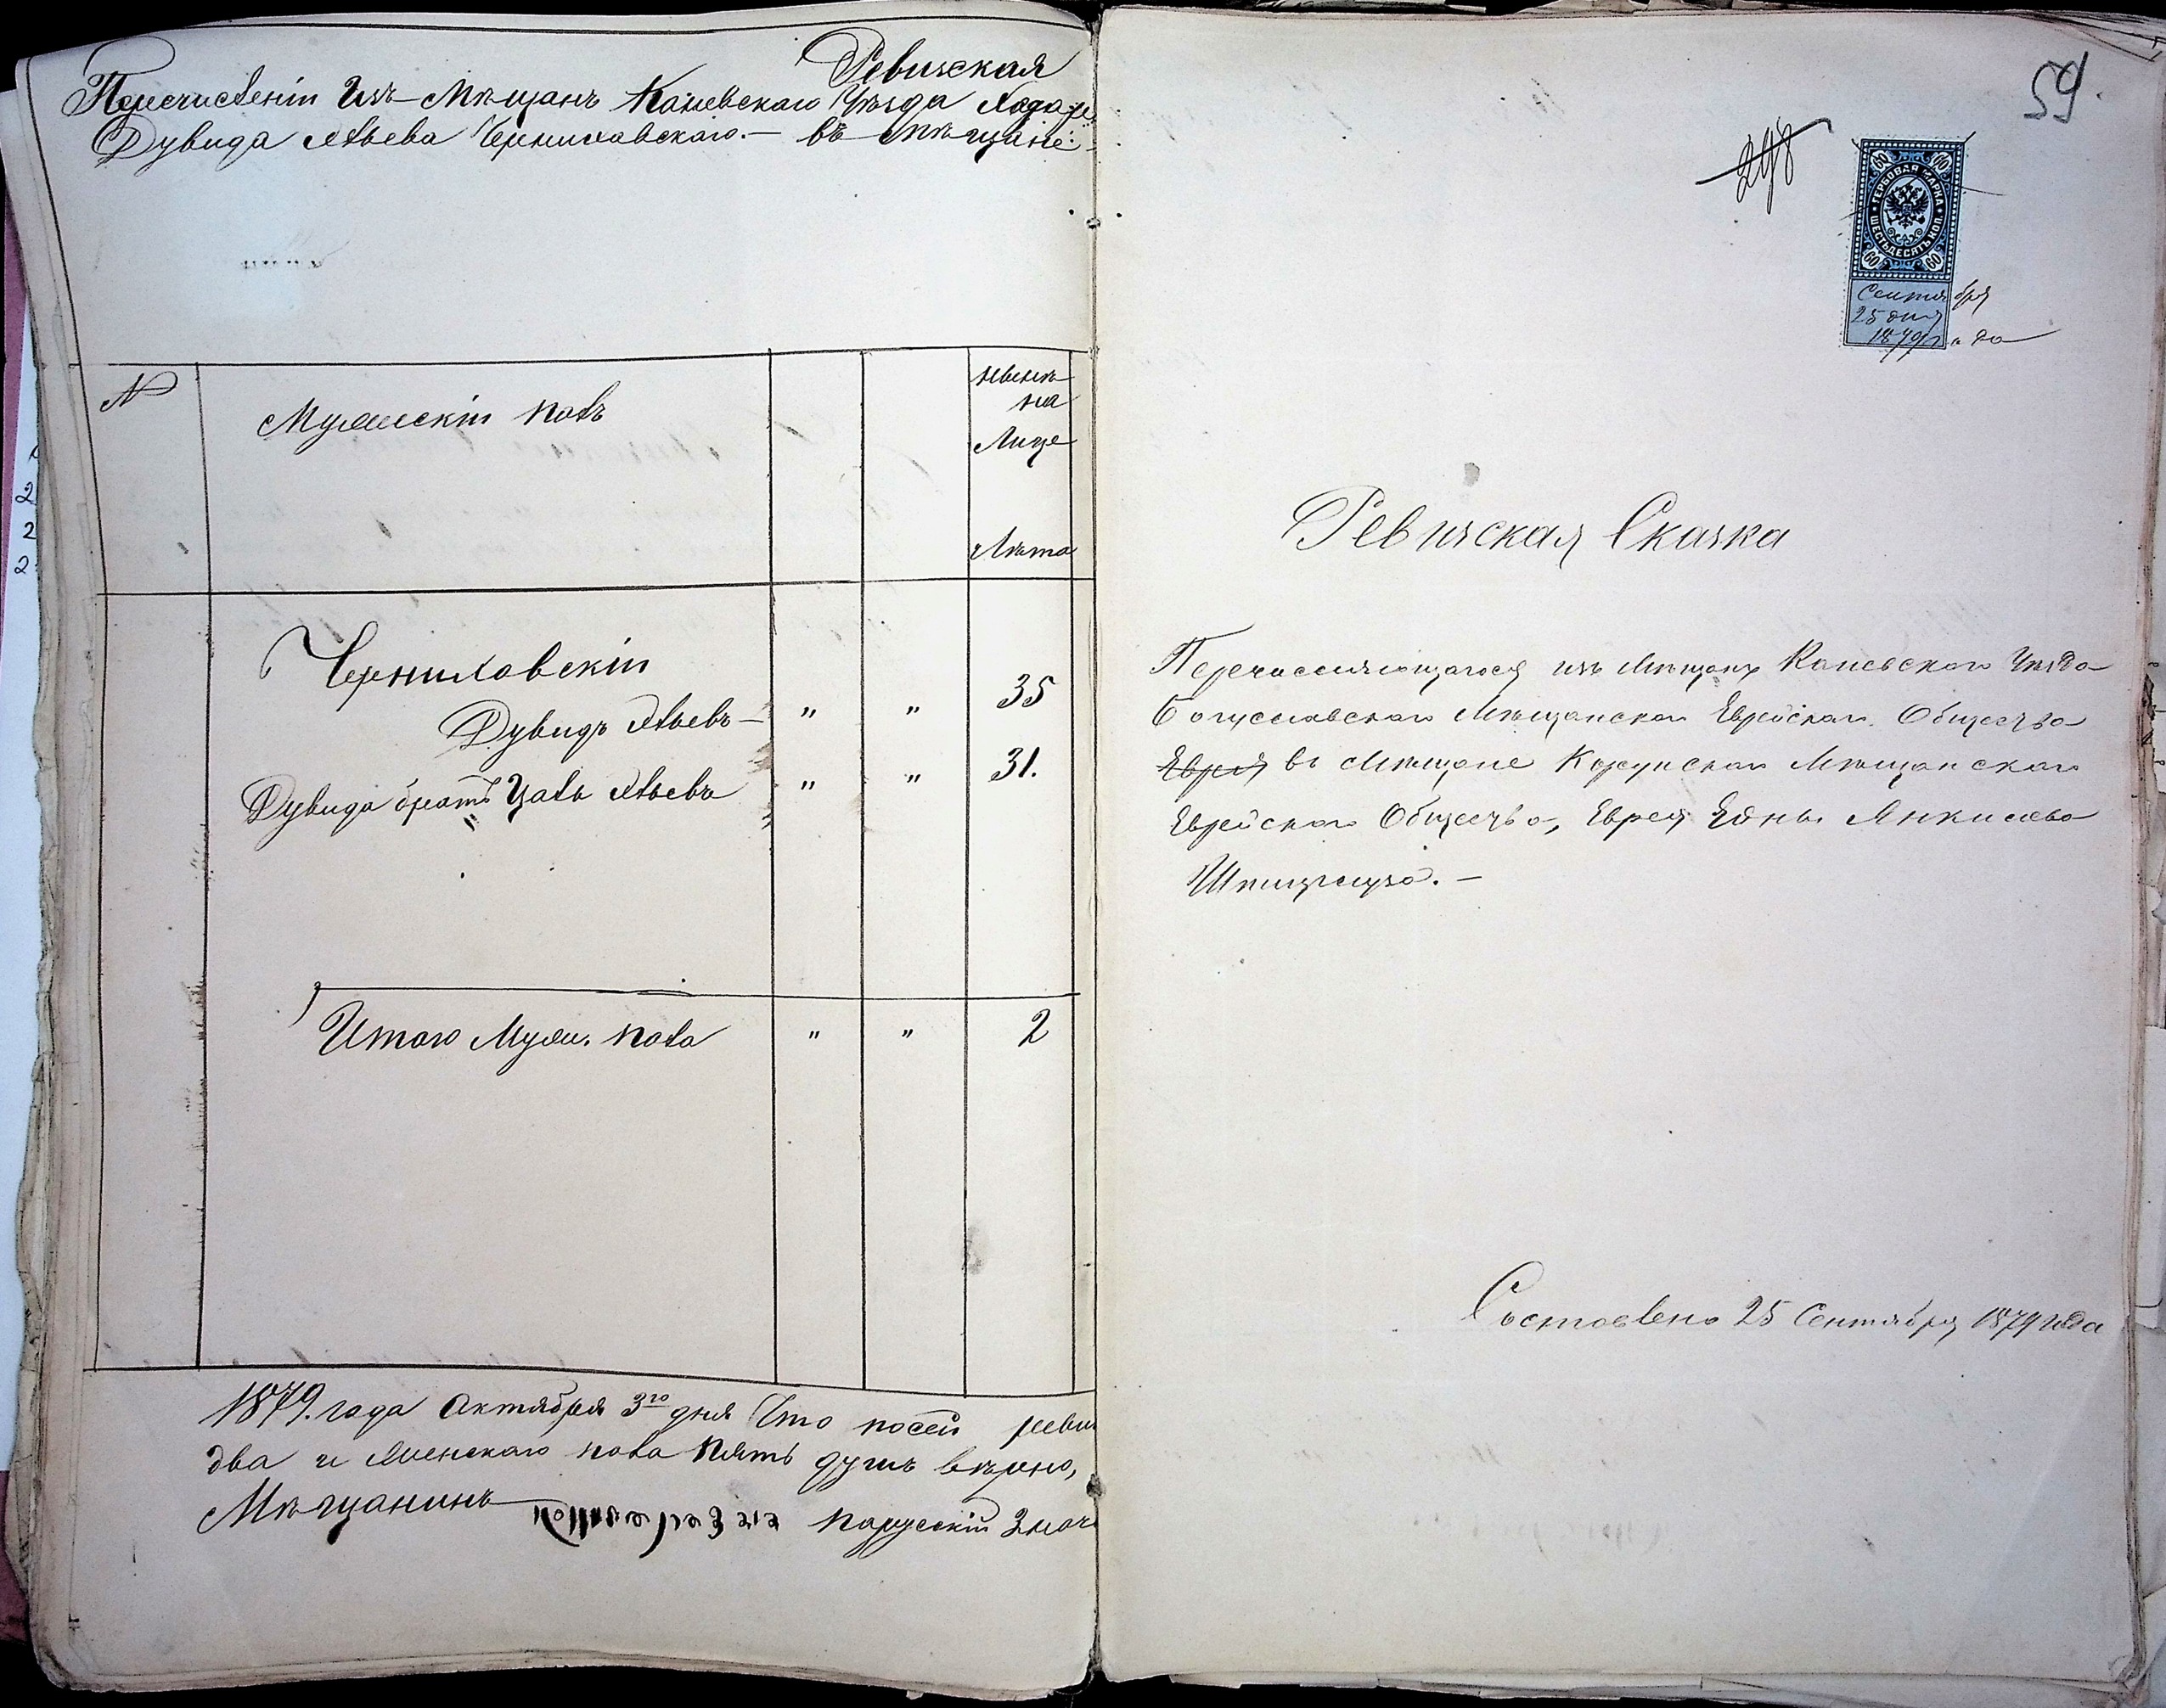 Ревизская
Перечисленіи Изъ Мѣщанъ Каневскаго Уѣзда
Дувида Черниховскаго. — въ Мѣщане
№
Мужескій полъ
нынѣ
на
Лице
Лѣта
Черниховскій
Дувидъ — " " 35
Дувида братъ " " 31.
Итого Муж. пола " " 2
1879. года Октября 3го дня Что посей
два и Женскаго пола пять душъ вѣрно,
Мѣщанинъ порусскій
59.
298
60 60
ГЕРБОВАЯ МАРКА
ШЕСТЬДЕСЯТЪ КОП.
60 60
Сентября
25 дня
1879 года
Ревизская Сказка
Перечисляющагося изъ Мѣщанъ Каневскаго Уѣзда
Богуславскаго Мѣщанскаго Еврейскаго Общества
Еврея въ Мѣщане Корсунскаго Мѣщанскаго
Еврейскаго Общества, Еврея Янкилева
Составлено 25 Сентября 1879 года